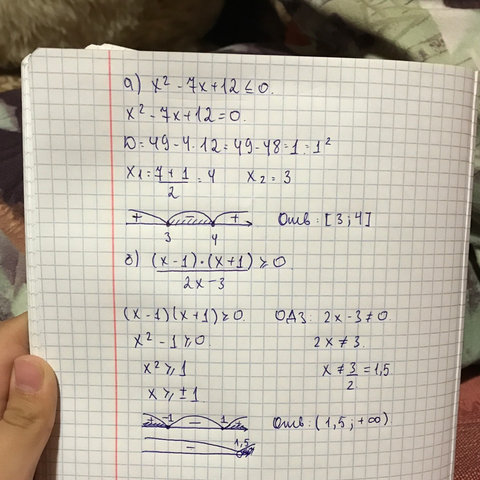 а) x² - 7x + 12 ≤ 0.
x² - 7x + 12 = 0.
D = 49 - 4·12 = 49 - 48 = 1 = 1²
x₁ = (7 + 1)/2 = 4 x₂ = 3
+ - +
3 4
Отв: [3; 4]
б) (x-1)·(x+1)/(2x-3) ≥ 0.
(x-1)(x+1) ≥ 0. ОДЗ: 2x - 3 ≠ 0.
x² - 1 ≥ 0. 2x ≠ 3.
x² ≥ 1 x ≠ 3/2 = 1,5
x ≥ ±1
+ -1 - 1 + Отв: (1,5; +∞)
- 1,5